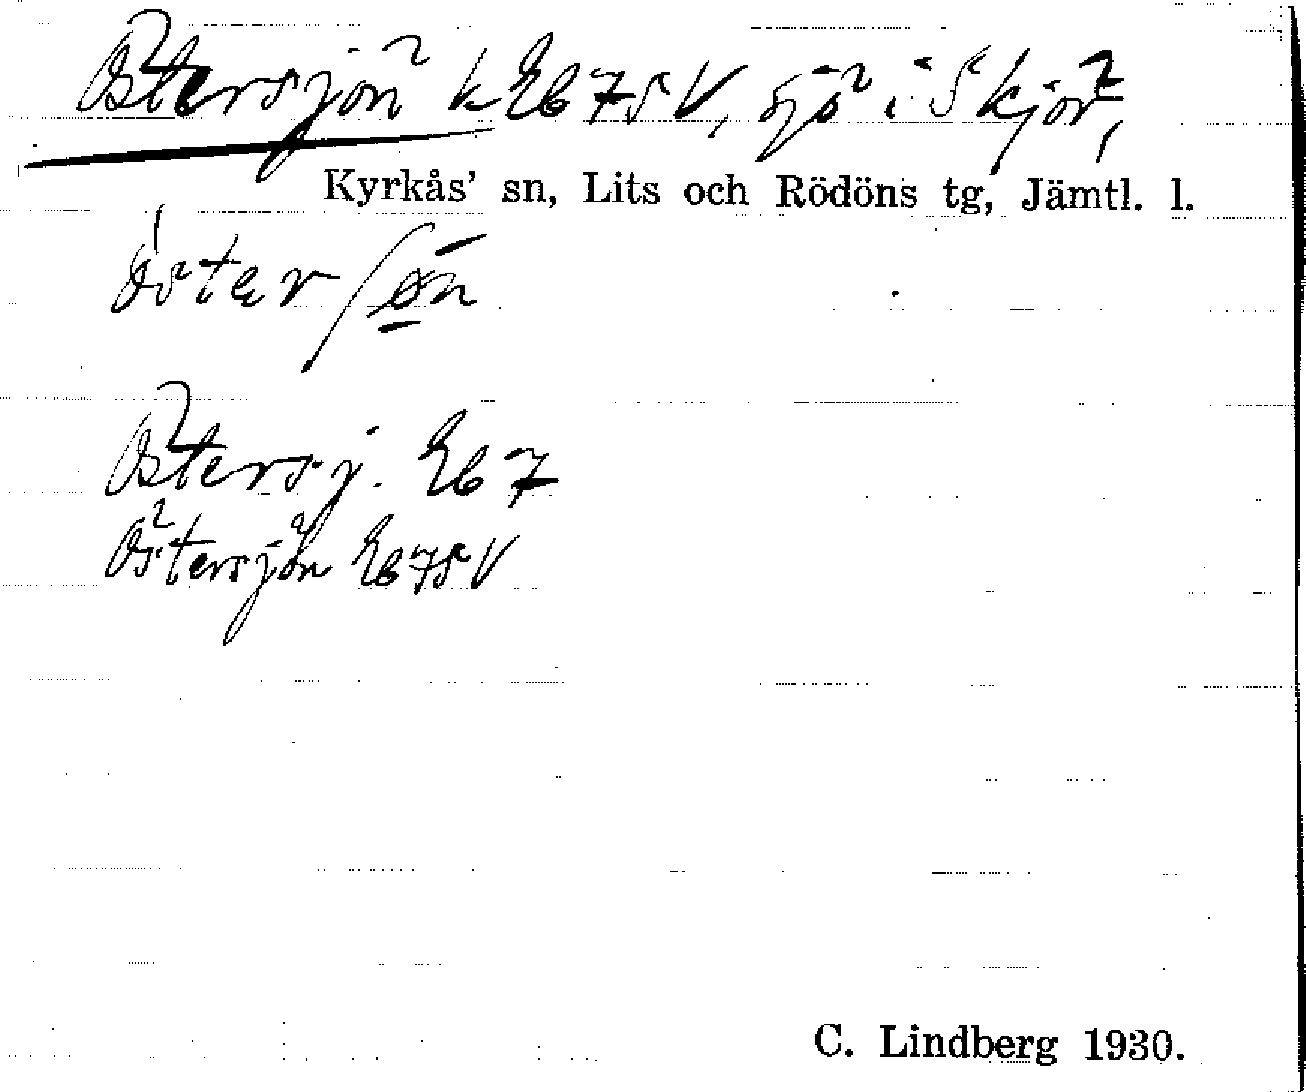 Östersjön k Eb 75 V, sjö i Skjör,
Kyrkås' sn, Lits och Rödöns tg, Jämtl. l.
Östersj. Eb 7
Östersjön Eb 75 V
C. Lindberg 1930.